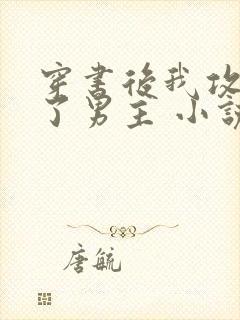 穿書後我攻
了男主 小說
唐毓